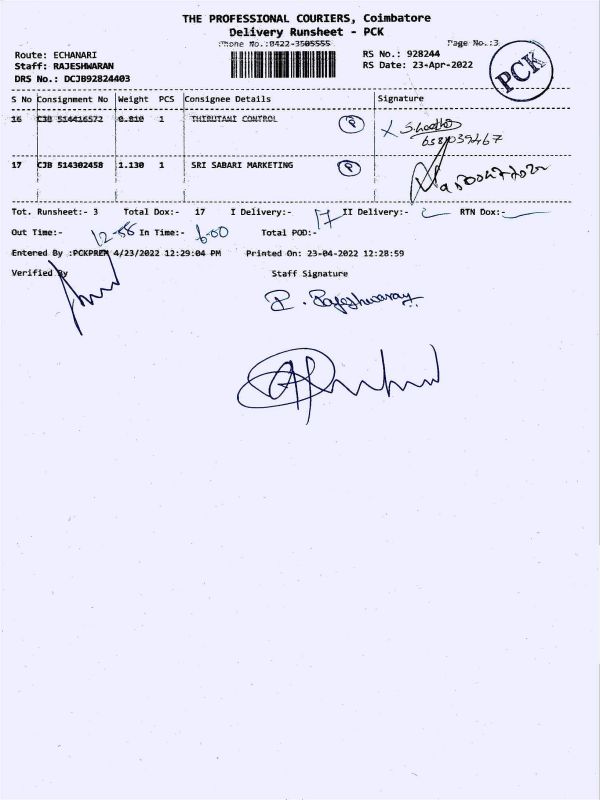 THE PROFESSIONAL COURIERS, Coimbatore
Delivery Runsheet - PCK
Phone No.:0422-3505555 Page No.:3
Route: ECHANARI RS No.: 928244
Staff: RAJESHWARAN RS Date: 23-Apr-2022
DRS No.: DCJB92824403
PCK
S No Consignment No Weight PCS Consignee Details Signature
16 CJB 514416572 0.810 1 THIRUTANI CONTROL P
17 CJB 514302458 1.130 1 SRI SABARI MARKETING P
Tot. Runsheet:- 3 Total Dox:- 17 I Delivery:- 17 II Delivery:- RTN Dox:-
Out Time:- 12-55 In Time:- 6-00 Total POD:-
Entered By :PCKPREM 4/23/2022 12:29:04 PM Printed On: 23-04-2022 12:28:59
Verified By Staff Signature